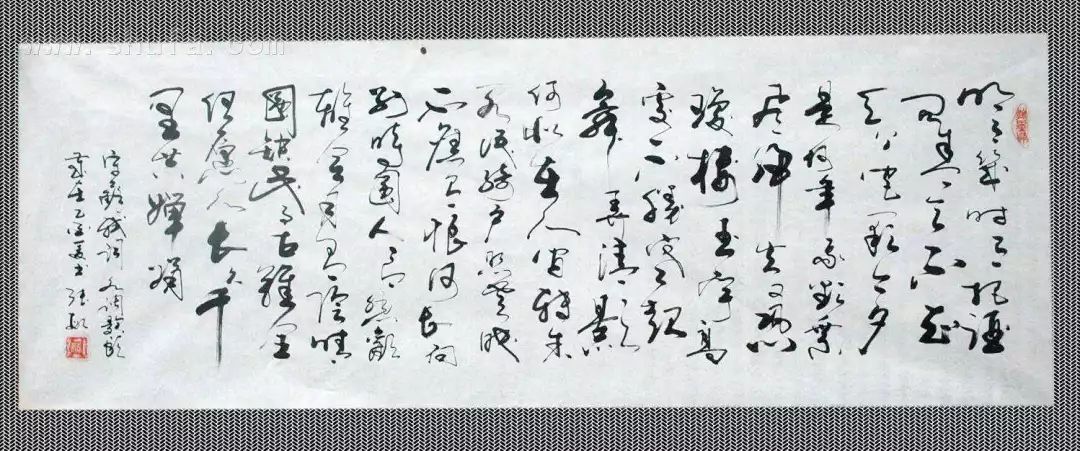 www.shufa.com
明月幾时有把酒
问青天不知
天上宫阙今夕
是何年我欲乘
风归去又恐
瓊樓玉宇高
處不勝寒起
舞弄清影
何似在人间转朱
阁低绮户照無眠
不應有恨何长向
别时圆人有悲歡
離合月有阴晴
圓缺此事古難全
但愿人长久千
里共嬋娟
宋蘇轼词水调歌头
乙酉夏书